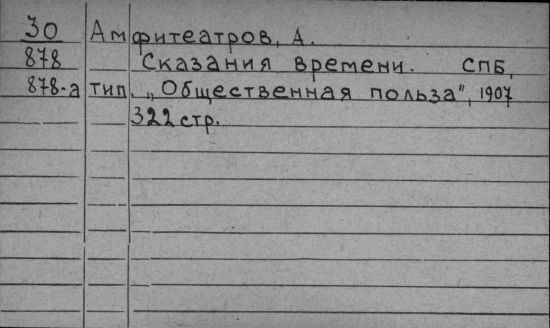 30 Амфитеатров, А.
878 Сказания времени. СПБ,
878-а тип. „Общественная польза", 1907
322 стр.